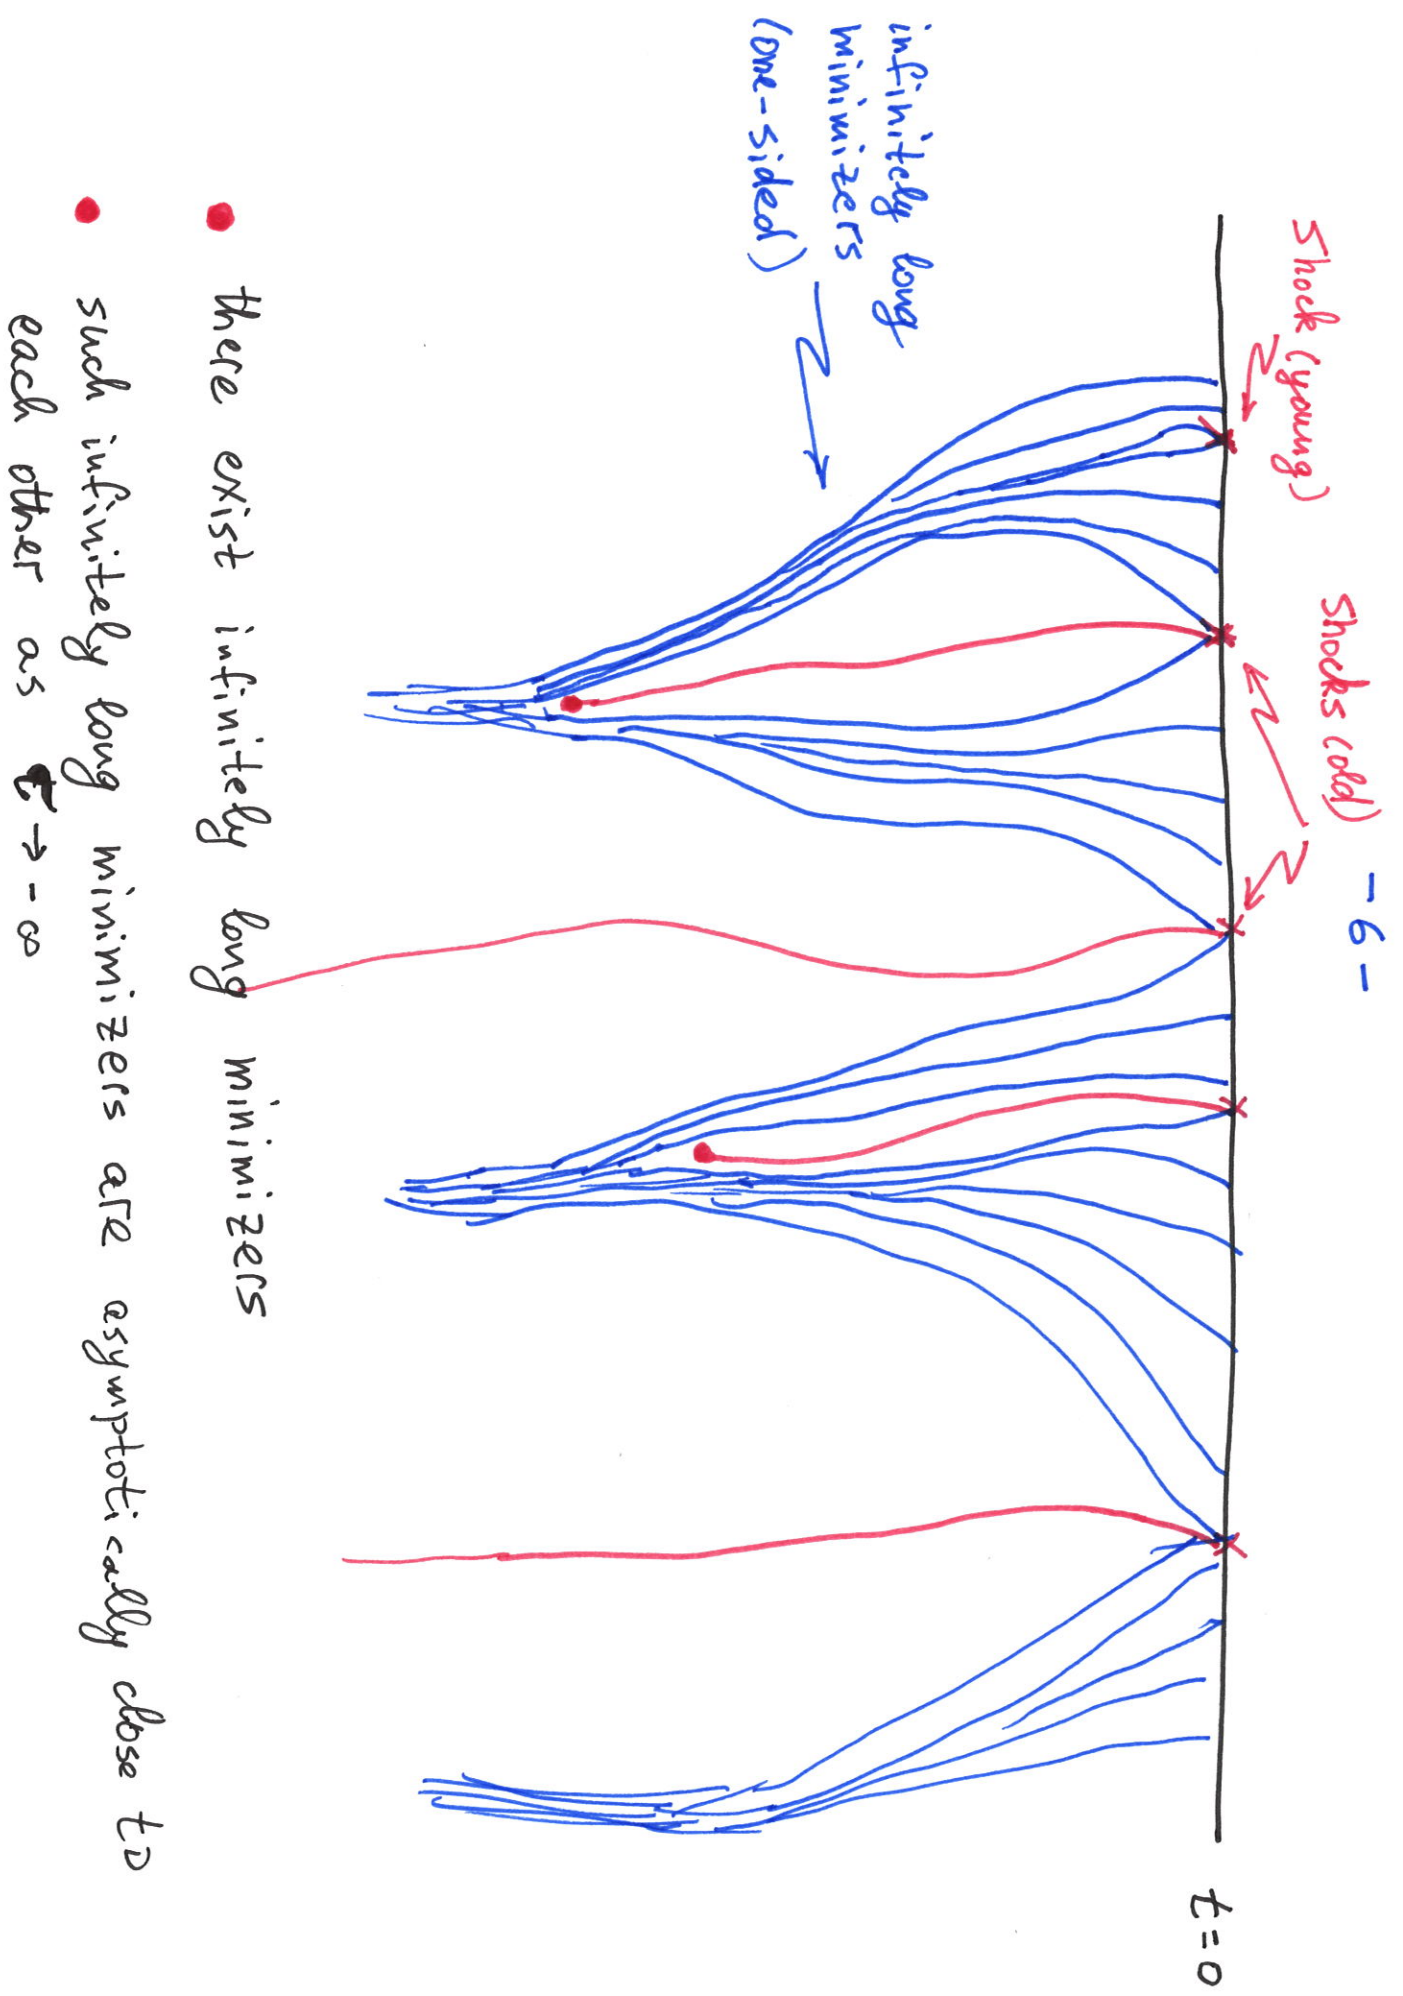 - 6 -
Shock (young)
Shocks (old)
t=0
infinitely long
minimizers
(one-sided)
there exist infinitely long minimizers
such infinitely long minimizers are asymptotically close to
each other as τ → -∞